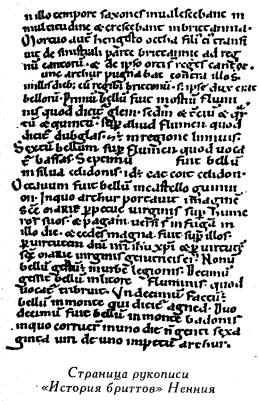 n illo tempore saxones inualescebant in
multitudine & crescebant inbrittannia.
Mortuo aut̄ hengisto octha fili' ei' transi
uit de sinistrali parte brittannie ad reg
nū cantorū. & de ipso orti reges cantor̄.
unc arthur pugnabat contra illos.
in illis dieb; cū regib; brittonū. s; ipse dux erat
bellorū. Primū bellū fuit inostiū flumi
nis quod dicit̄ glein. scd̄m & t̄ciū & qr̄
tū & quintū. sup̄ aliud flumen quod
dicit̄ dubglas. & in regione linnuis
Sextū bellum sup̄ flumen quod uoca
t̄ bassas. Septimū fuit bellū
in silua celidonis. id ē cat coit celidon.
Octauum fuit bellū incastello guinni
on. Inquo arthur portauit imaginē
scē mariē p̄petuē uirginis sup̄ hume
ros suos. & pagani uersi in fugā in
illo die. & cedes magna fuit sup̄ illos.
p̄ uirtutem dn̄i nr̄i ih̄u xp̄i & p̄ uirtutē
scē mariē uirginis genitricis ei'. Nonū
bellū gestū inurbe legionis. Decimū
gessit bellū inlitore fluminis. quod
uocat̄ tribruit. Undecimū factū ē
bellū inmonte qui dicit̄ agned. Duo
decimū fuit bellū inmonte badonis
inquo corruer̄ inuno die n̄genti sexa
ginta uiri de uno impetu arthur.
Страница рукописи
«История бриттов» Ненния